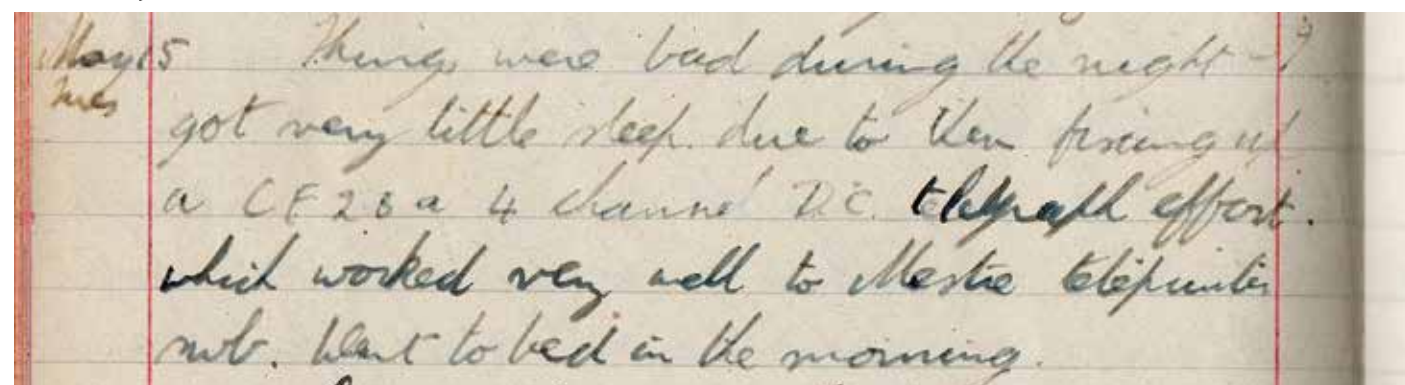 May 15 Things were bad during the night - I
Tues
got very little sleep. due to them fixing up
a CF2B a 4 channel D.C. telegraph effort.
which worked very well to Mestre teleprinter
Went to bed in the morning.